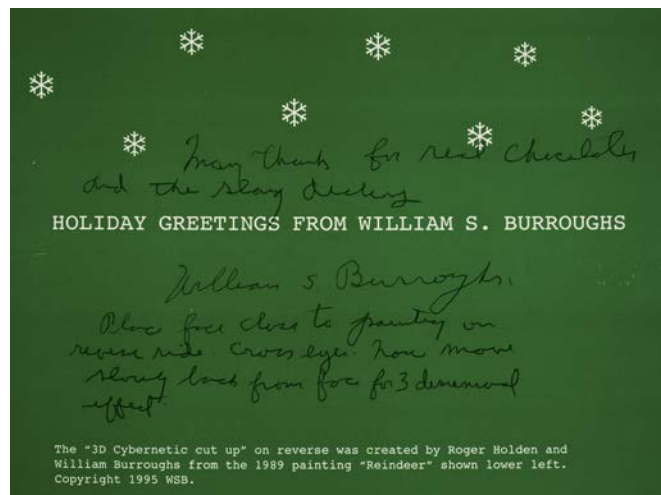 Many thanks for real Chocolates
and the slang
HOLIDAY GREETINGS FROM WILLIAM S. BURROUGHS
William S. Burroughs.
Place face close to painting on
reverse side. Cross eyes. Now move
slowly back from face for 3 demensional
effect.
The "3D Cybernetic cut up" on reverse was created by Roger Holden and
William Burroughs from the 1989 painting "Reindeer" shown lower left.
Copyright 1995 WSB.